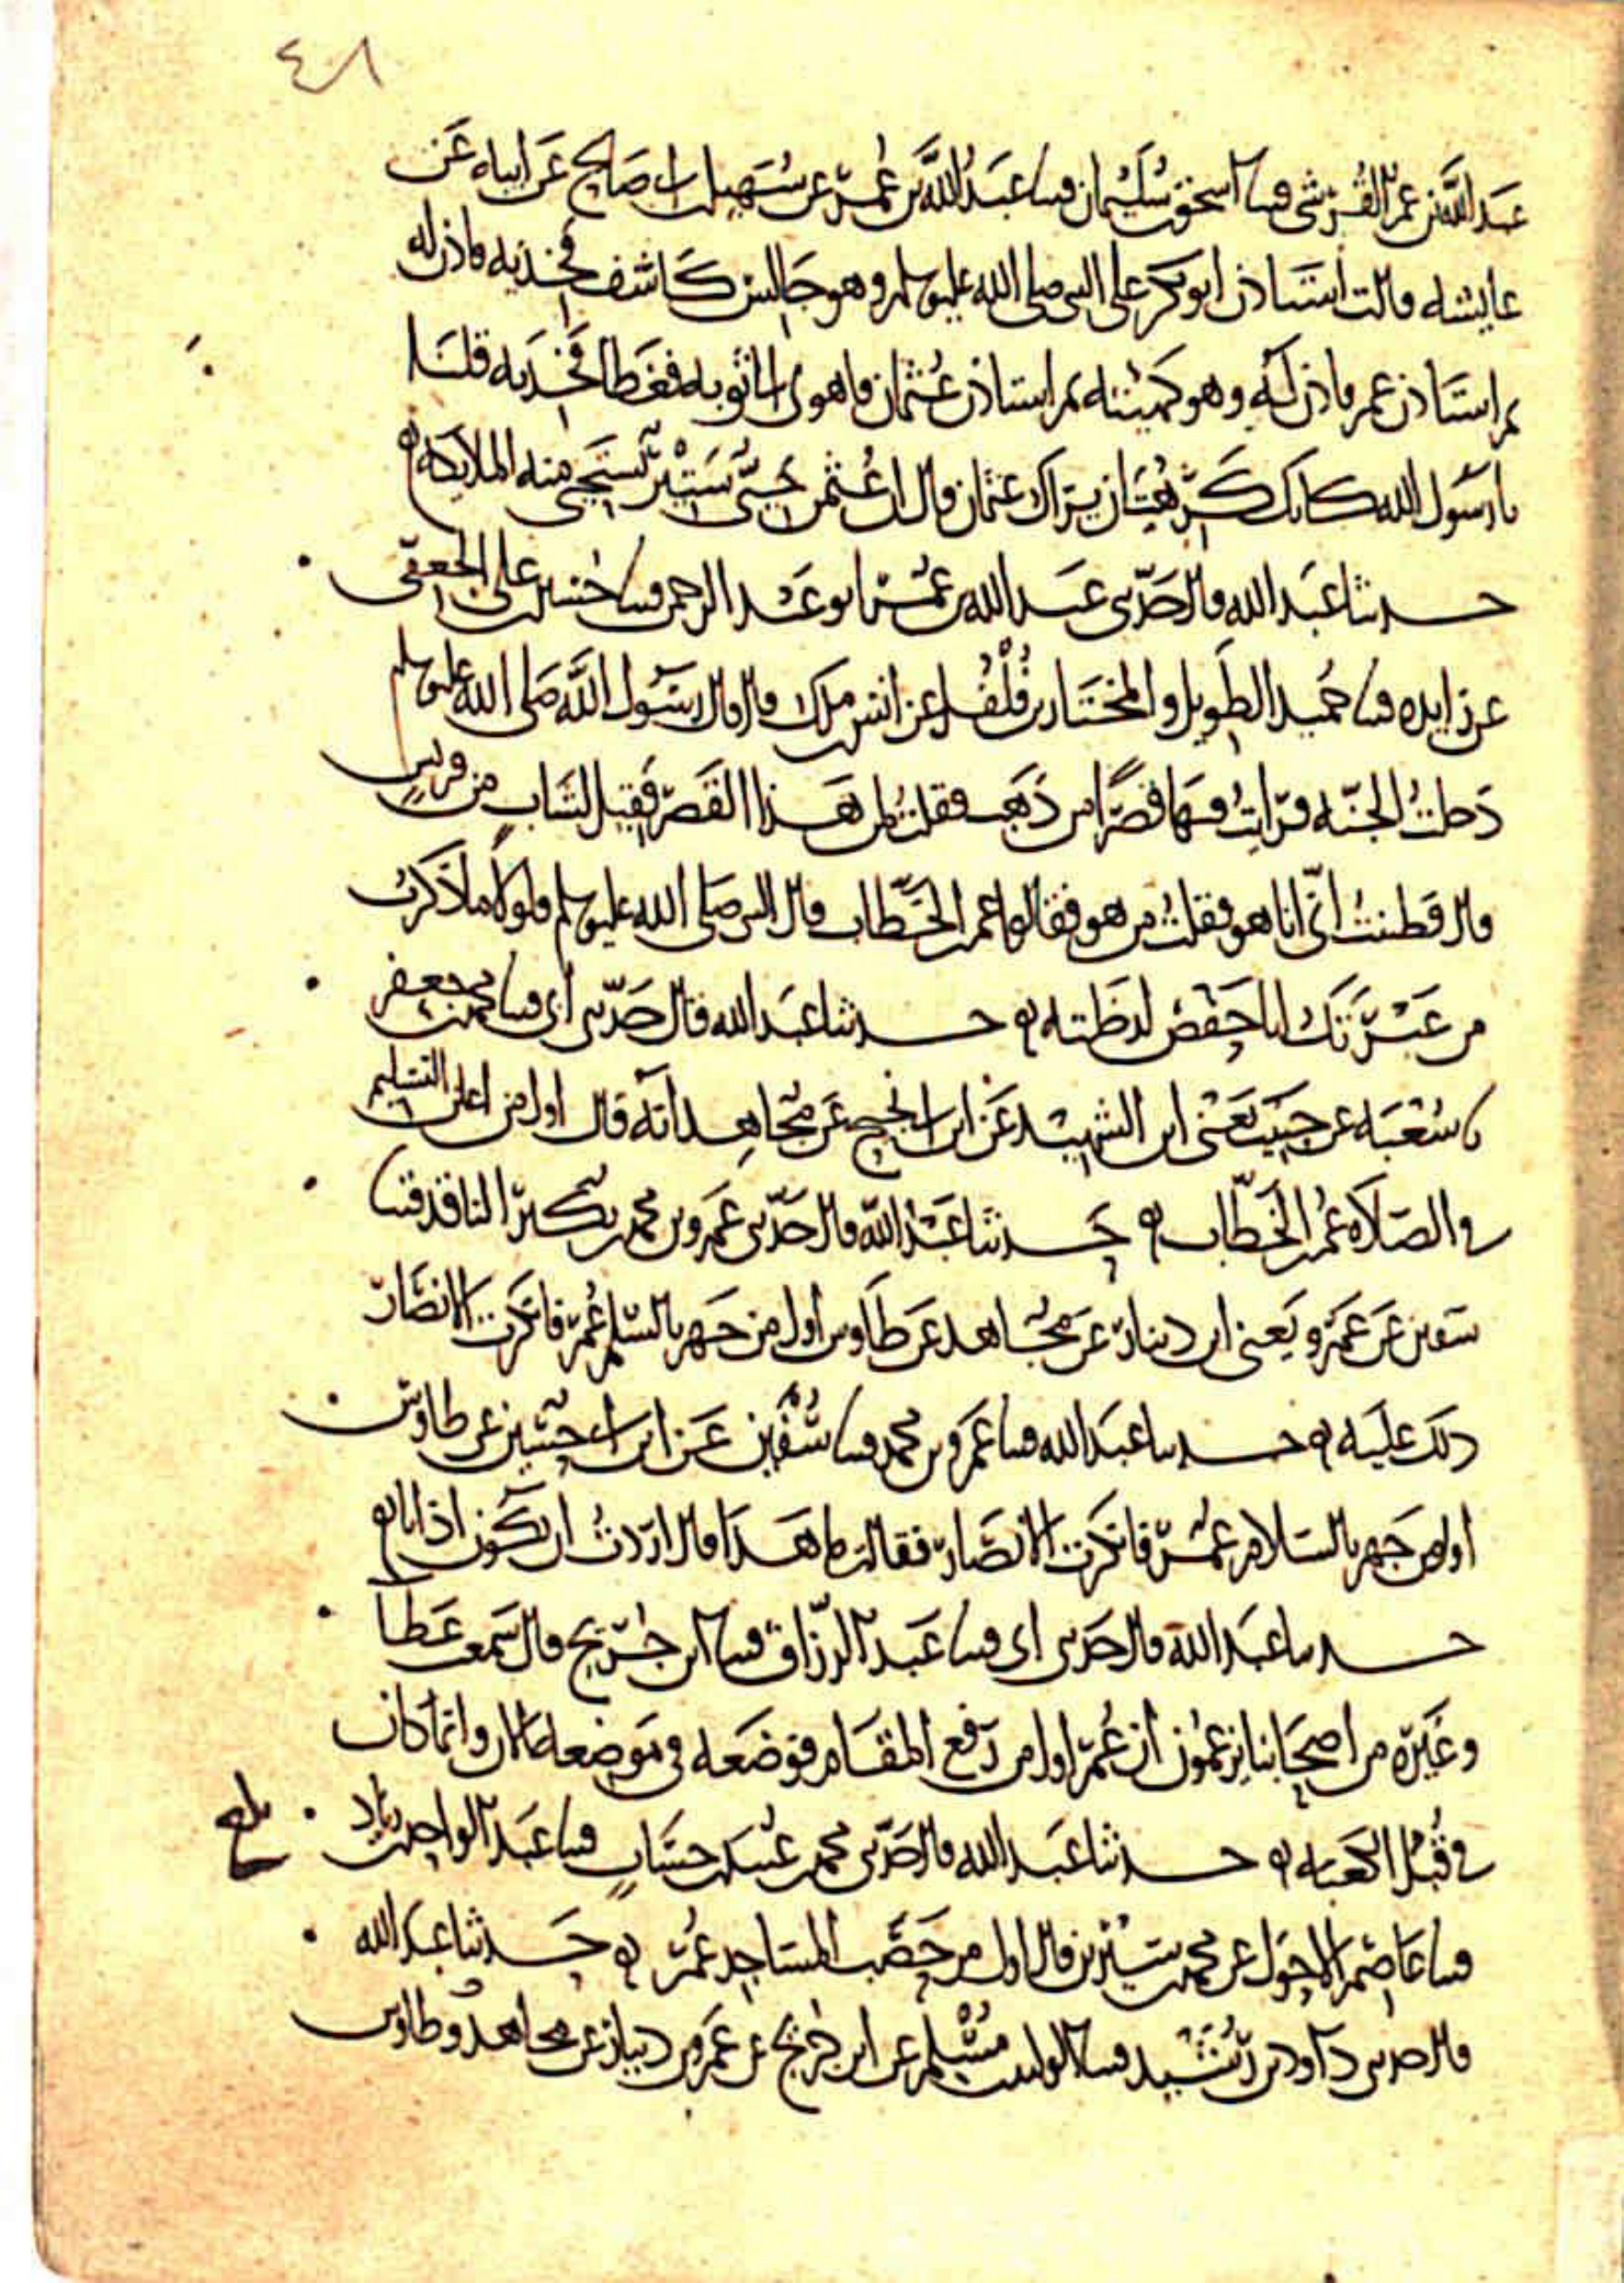 ٤٨
عبد الله بن عمر القرشي قثنا اسحق بن سليمان قثنا عبد الله بن عمر عن سهيل بن ابي صالح عن ابيه عن
عايشه قالت استاذن ابو بكر على النبي صلى الله عليه وسلم وهو جالس كاشف فخذيه فاذن له
ثم استاذن عمر فاذن له وهو كهيئته ثم استاذن عثمان فاهوى الى ثوبه فغطا فخذيه قلنا
يا رسول الله كانك كرهت ان يراك عثمان قال ان عثمن حيي ستير تستحيي منه الملايكة ه
حدثنا عبد الله قال حدثني عبد الله بن عمر ابو عبد الرحمن قثنا حسين بن علي الجعفي
عن زايده قثنا حميد الطويل والمختار بن فلفل عن انس بن ملك قال قال رسول الله صلى الله عليه وسلم
دخلت الجنه فرايت فيها قصرا من ذهب فقلت لمن هذا القصر فقيل لشاب من قريش
قال فظننت اني انا هو فقلت من هو فقالوا عمر بن الخطاب قال النبي صلى الله عليه وسلم فلولا ما ذكرت
من غيرتك ابا حفص لدخلته ه حدثنا عبد الله قال حدثني ابي قثنا محمد بن جعفر
نا شعبه عن حبيب يعني ابن الشهيد عن ابن ابي نجيح عن مجاهد انه قال اول من اعلن التسليم
في الصلاة عمر بن الخطاب ه حدثنا عبد الله قال حدثني عمرو بن محمد بن بكير الناقد قثنا
سفين عن عمرو يعني ابن دينار عن مجاهد عن طاوس اول من جهر بالتسليم عمر فانكرت الانصار
ذلك عليه ه حدثنا عبد الله قثنا عمرو بن محمد قثنا سفين عن ابن ابي حسين عن طاوس
اول من جهر بالسلام عمر فانكرت الانصار فقالت ما هذا قال اردت ان يكون اذانا ه
حدثنا عبد الله قال حدثني ابي قثنا عبد الرزاق قثنا ابن جريج قال سمعت عطا
وغيره من اصحابنا يزعمون ان عمر اول من رفع المقام فوضعه في موضعه الان وانما كان
في قبل الكعبه ه حدثنا عبد الله قال حدثني محمد بن عبيد بن حساب قثنا عبد الواحد بن زياد
بلغ
قثنا عاصم الاحول عن محمد بن سيرين قال اول من حصب المساجد عمر ه حدثنا عبد الله
قال حدثني داود بن رشيد قثنا الوليد بن مسلم عن ابن جريج عن عمرو بن دينار عن مجاهد وطاوس